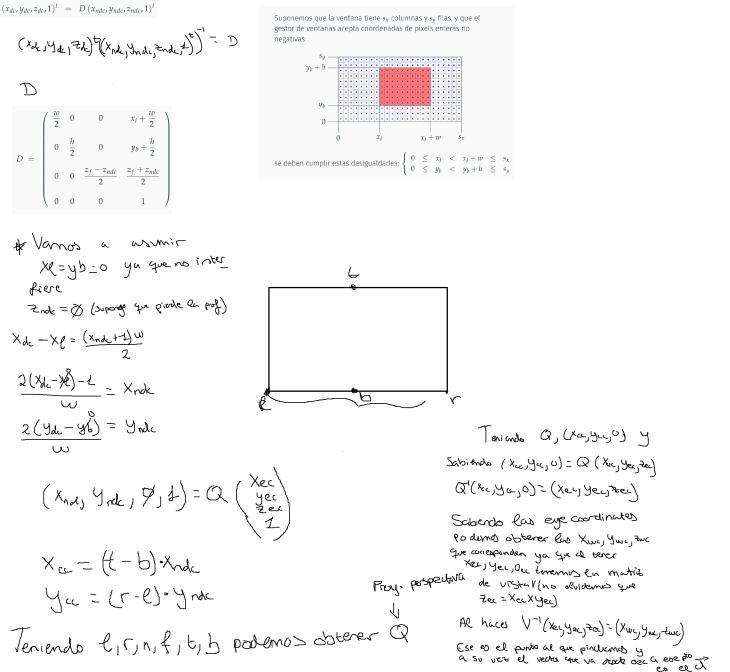 (x_dc, y_dc, z_dc, 1)^t = D (x_ndc, y_ndc, z_ndc, 1)^t
(x_dc, y_dc, z_dc)^t ((x_ndc, y_ndc, z_ndc, 1)^t)^-1 = D
D
D = ( w/2 0 0 x_l + w/2
0 h/2 0 y_b + h/2
0 0 (z_f - z_ndc)/2 (z_f + z_ndc)/2
0 0 0 1 )
Suponemos que la ventana tiene s_x columnas y s_y filas, y que el
gestor de ventanas acepta coordenadas de pixels enteras no
negativas:
s_y
y_b + h
y_b
0
0 x_l x_l + w s_x
se deben cumplir estas desigualdades: { 0 ≤ x_l < x_l + w ≤ s_x
0 ≤ y_b < y_b + h ≤ s_y
* Vamos a asumir
xl = yb = 0 ya que no inter_
fiere
z_ndc = 0 (supongo que pierde la prof)
x_dc - x_l = (x_ndc + 1) w / 2
2(x_dc - xl) - 1 / w = x_ndc
2(y_dc - yb) / w = y_ndc
0
t
l b r
(x_ndc, y_ndc, 0, 1) = Q (xec
yec
zec
1)
x_cc = (t - b) · x_ndc
y_cc = (r - l) · y_ndc
Teniendo l, r, n, f, t, b podemos obtener Q
Proy. perspectiva
Teniendo Q, (x_cc, y_cc, 0) y
Sabiendo (x_cc, y_cc, 0) = Q (x_ec, y_ec, z_ec)
Q^-1 (x_cc, y_cc, 0) = (x_ec, y_ec, z_ec)
Sabiendo las eye coordinates
podemos obtener las x_wc, y_wc, z_wc
que corresponden ya que al tener
x_ec, y_ec, z_ec tenemos la matriz
de vista V (no olvidemos que
z_ec = x_ec x y_ec)
Al hacer V^-1 (x_ec, y_ec, z_ec) = (x_wc, y_wc, z_wc)
Ese es el punto al que pinchamos y
a su vez el vector que va desde oec a ese pto
es el